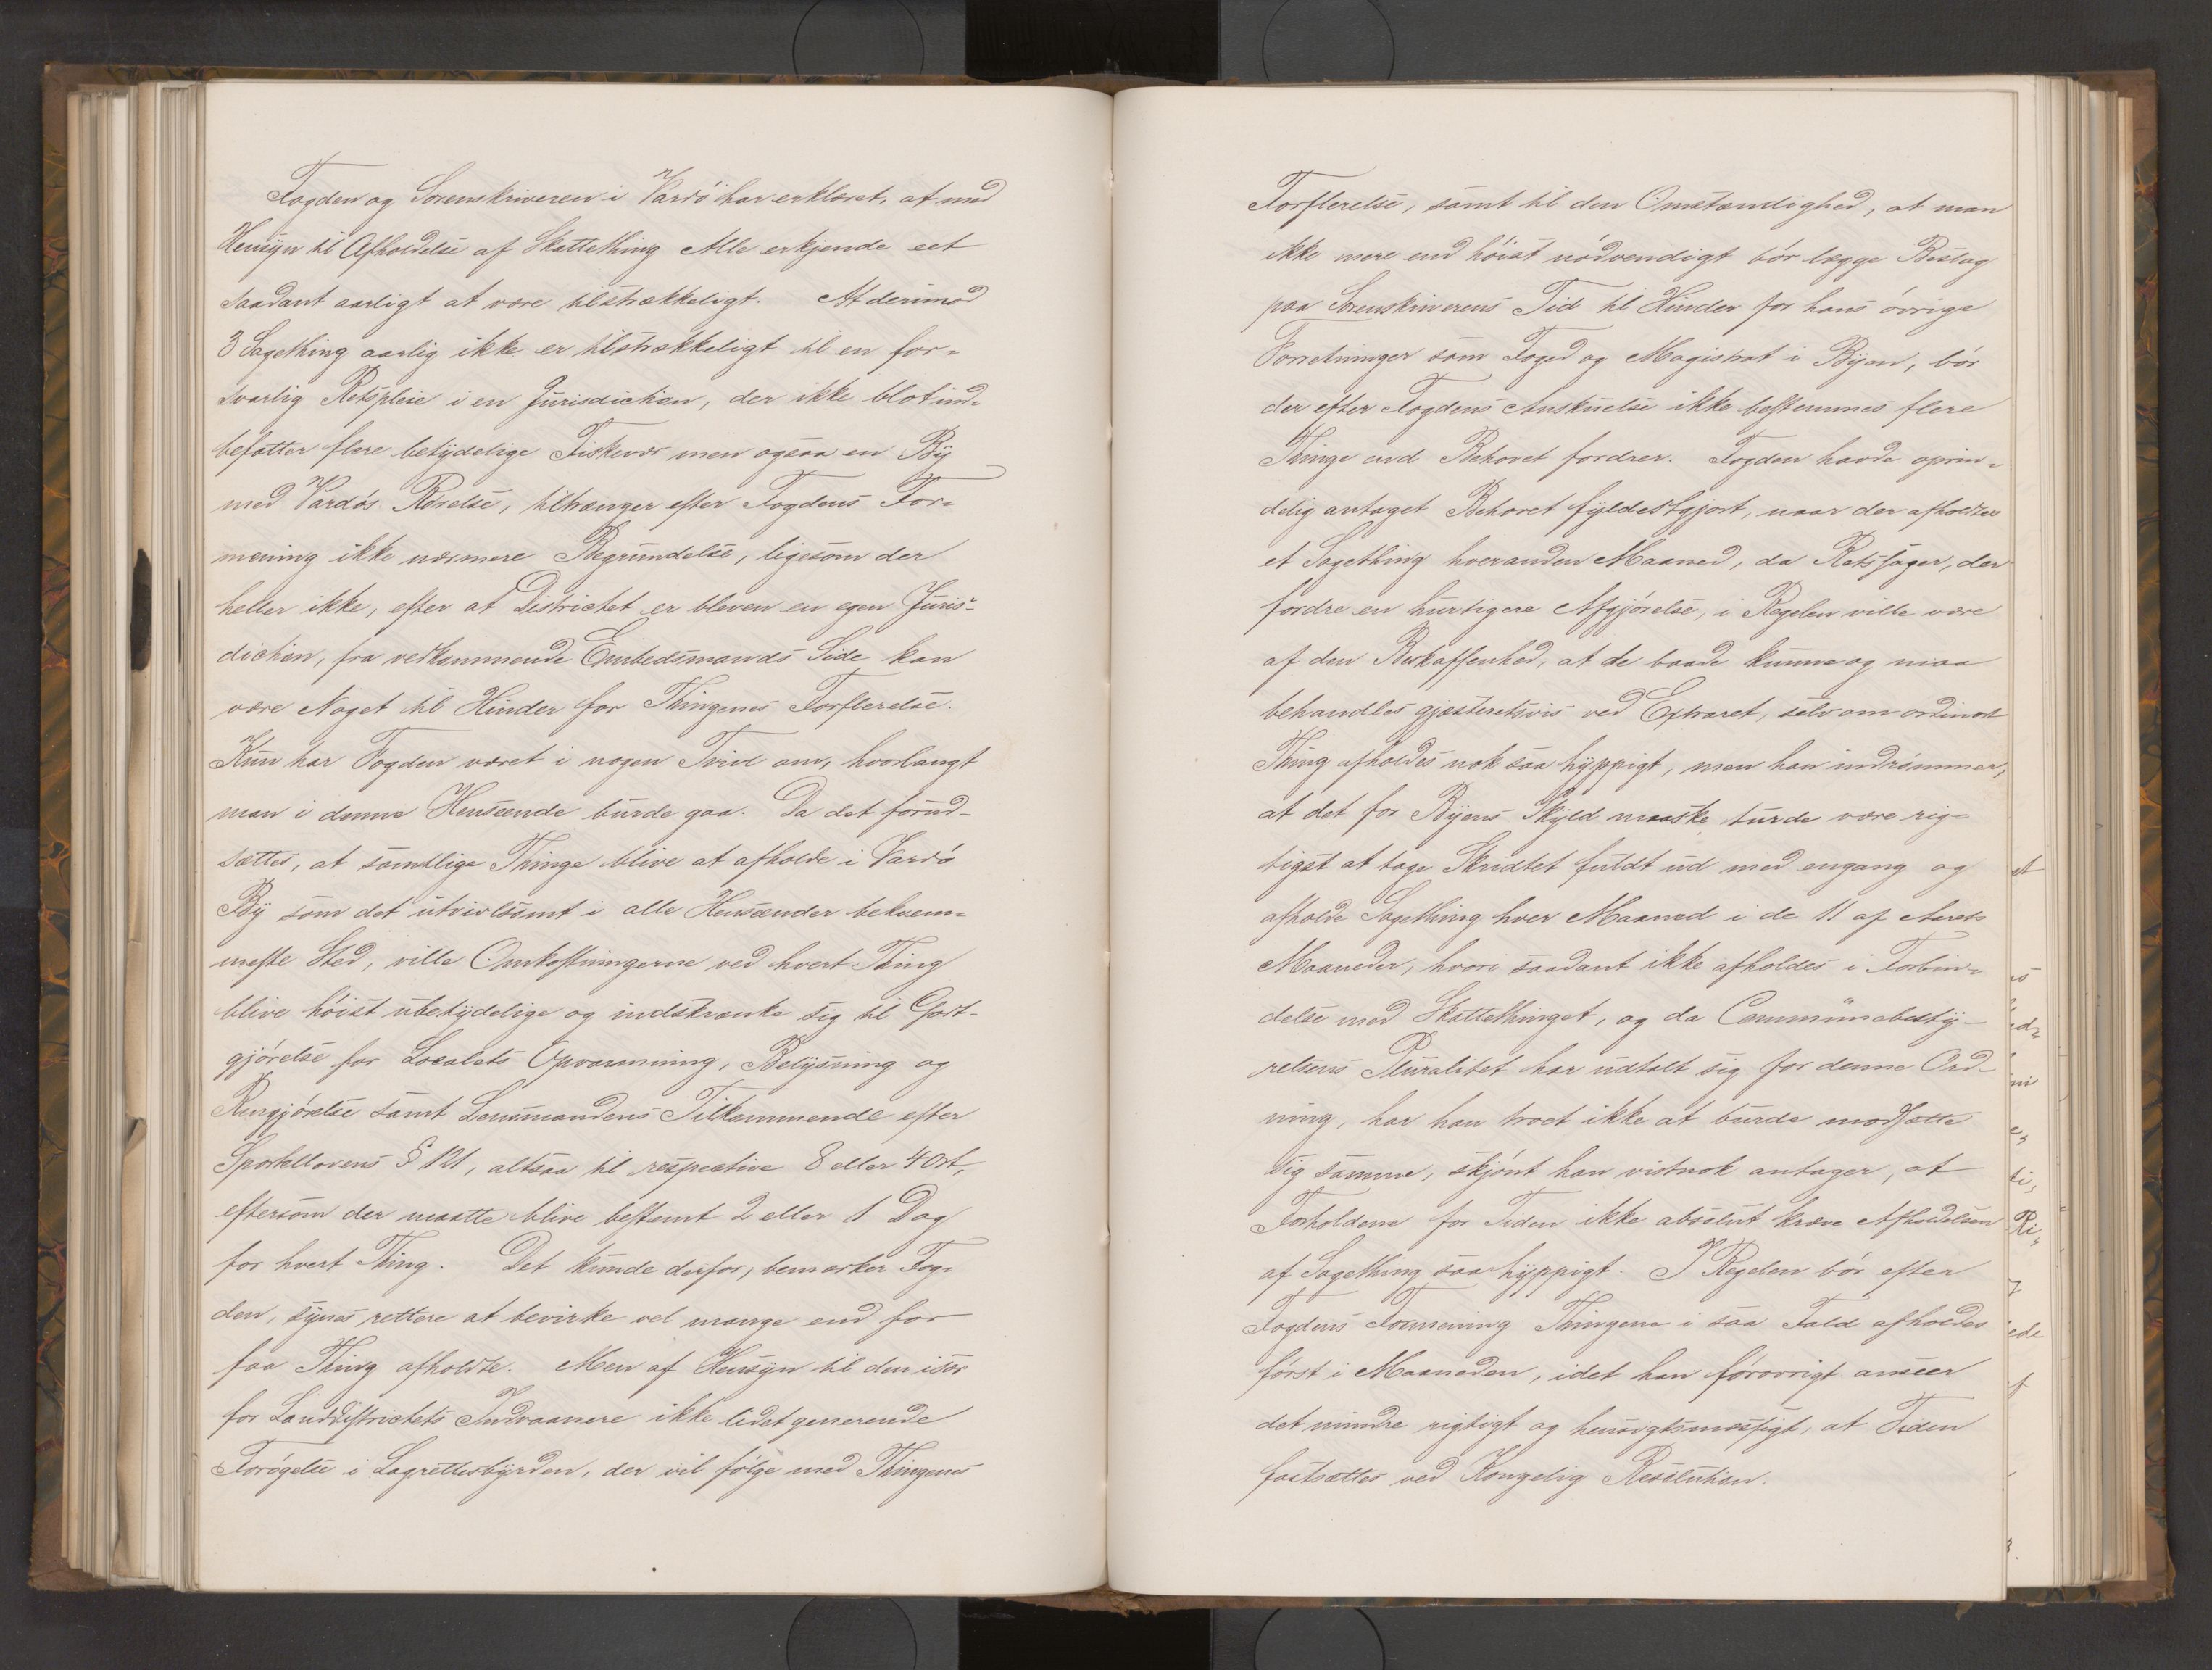 Fogden og Sorenskriveren i Vardö har erklæret, at med
Hensyn til Afholdelse af Skattething Alle erkjende eet
saadant aarligt at være tilstrækkeligt. At derimod
3 Sagething aarlig ikke er tilstrækkeligt til en for-
svarlig Retspleie i en Jurisdiction, der ikke blot ind-
befatter flere betydelige Fiskevær men ogsaa en By
med Vardös Rörelse, tiltrænger efter Fogdens For-
mening ikke nærmere Begrundelse, ligesom der
heller ikke, efter at Districtet er bleven en egen Juris-
diction, fra vedkommende Embedsmands Side kan
være Noget til Hinder for Thingenes Forflerelse.
Kun har Fogden været i nogen Tvivl om, hvorlangt
man i denne Henseende burde gaa. Da det forud-
sættes, at samtlige Thinge blive at afholde i Vardö
By som det utvivlsomt i alle Henseender bekvem-
meste Sted, ville Omkostningerne ved hvert Thing
blive höist ubetydelige og indskrænke sig til Godt-
gjörelse for Localets Opvarmning, Belysning og
Rengjörelse samt Lensmandens Tilkommende efter
Sportellovens § 121, altsaa til respective 8 eller 4 Ort,
eftersom der maatte blive bestemt 2 eller 1 Dag
for hvert Thing. Det kunde derfor, bemærker Fog-
den, synes rettere at bevirke vel mange end for
faa Thing afholdte. Men af Hensyn til den især
for Landdistrictets Indvaanere ikke lidet generende
Forögelse i Lagrettesbyrden, der vil fölge med Thingenes
Forflerelse, samt til den Omstændighed, at man
ikke mere end höist nödvendigt bör lægge Beslag
paa Sorenskriverens Tid til Hinder for hans övrige
Forretninger som Foged og Magistrat i Byen, bör
der efter Fogdens Anskuelse ikke bestemmes flere
Thinge end Behovet fordrer. Fogden havde oprin-
delig antaget Behovet fyldestgjort, naar der afholdtes
et Sagething hveranden Maaned, da Retssager, der
fordre en hurtigere Afgjörelse, i Regelen ville være
af den Beskaffenhed, at de baade kunne og maa
behandles gjesteretsvis ved Extraret, selv om ordinært
Thing afholdes nok saa hyppigt, men han indrömmer,
at det for Byens Skyld maaske turde være rig-
tigst at tage Skridtet fuldt ud med engang og
afholde Sagething hver Maaned i de 11 af Aarets
Maaneder, hvori saadant ikke afholdes i Forbin-
delse med Skattethinget, og da Communebesty-
relsens Pluralitet har udtalt sig for denne Ord-
ning, har han troet ikke at burde modsætte
sig samme, skjönt han vistnok antager, at
Forholdene for Tiden ikke absolut kræve Afholdelsen
af Sagething saa hyppigt. I Regelen bör efter
Fogdens Formening Thingene i saa Fald afholdes
först i Maaneden, idet han forövrigt anseer
det mindre rigtigt og hensigtsmæssigt, at Tiden
fastsættes ved Kongelig Resolution.